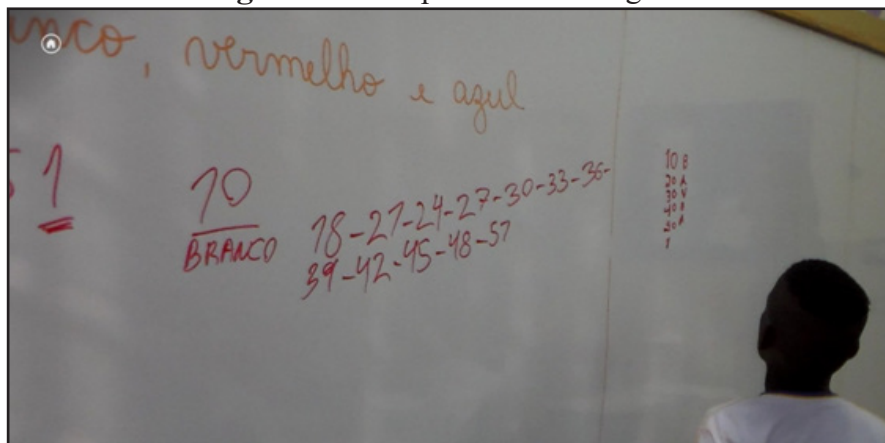 vermelho e azul
1
10
BRANCO
18-21-24-27-30-33-36-
39-42-45-48-51
10 B
20 A
30 V
1